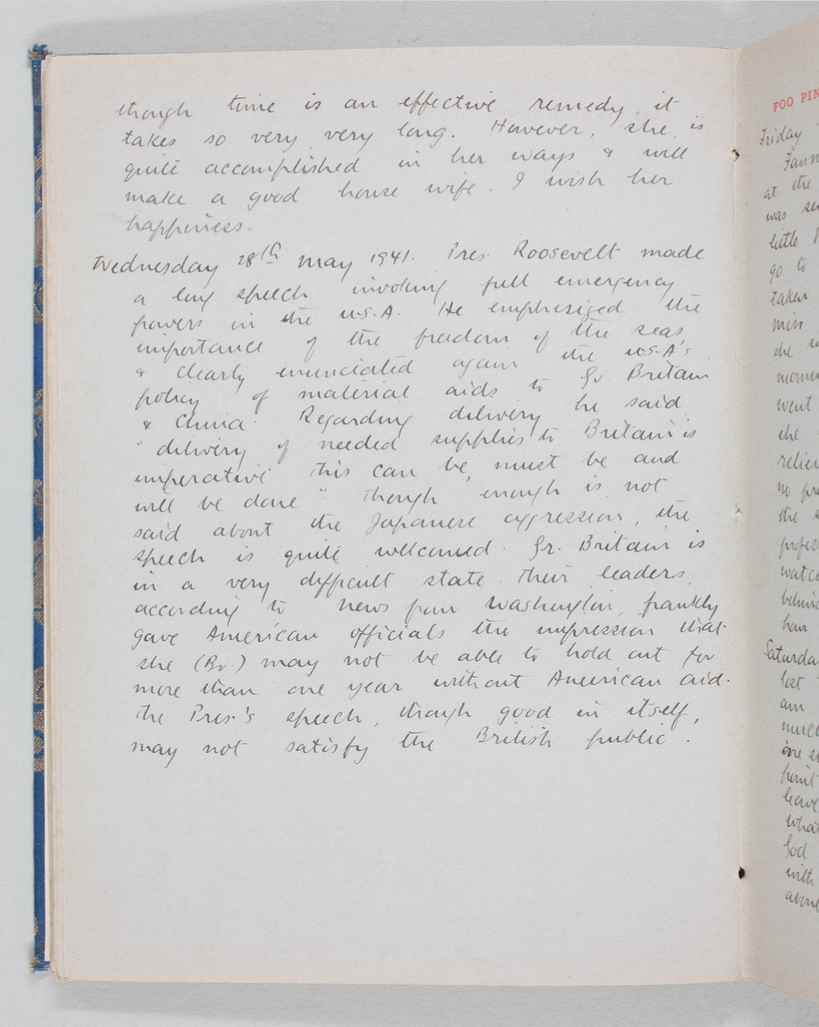 though time is an effective remedy, it
takes so very, very long. However, she is
quite accomplished in her ways & will
make a good house wife. I wish her
happiness.
Wednesday 28th May 1941. Pres. Roosevelt made
a long speech involving full emergency
powers in the U.S.A. He emphasized the
importance of the freedom of the seas
& clearly enunciated again the U.S.A's
policy of material aids to Gr. Britain
& China. Regarding delivery he said
"delivery of needed supplies to Britain is
imperative. This can be, must be and
will be done". Though enough is not
said about the Japanese aggression, the
speech is quite welcomed. Gr. Britain is
in a very difficult state. Their leaders,
according to news from Washington, frankly
gave American officials the impression that
she (Br.) may not be able to hold out for
more than one year without American aid.
The Pres.'s speech, though good in itself,
may not satisfy the British public.
FOO PIN
Friday
at the
was
little
go to
taken
miss
she
went
she
no
the
behin
him
Saturda
lost
am
leave
what
God
with